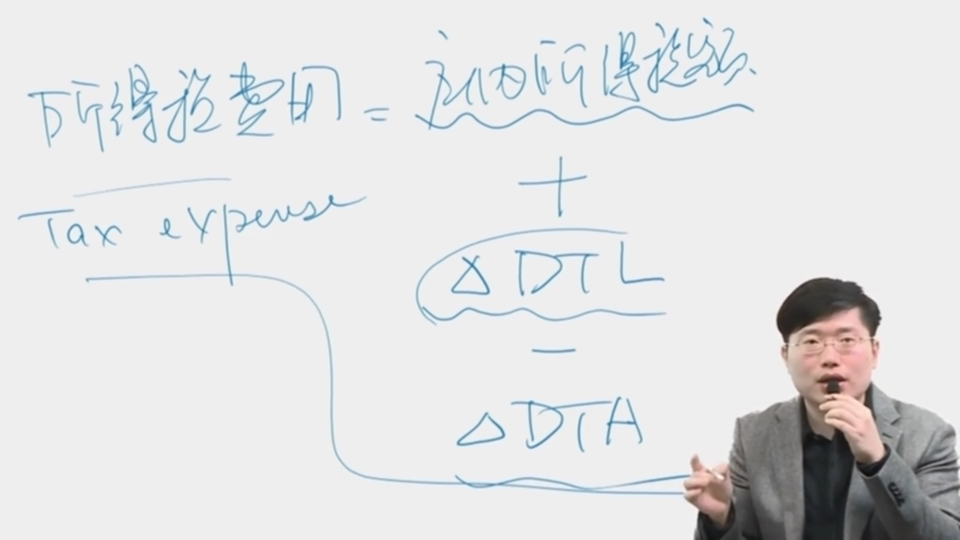 所得税费用 = 应纳所得税额
Tax expense
+
△ DTL
−
△ DTA